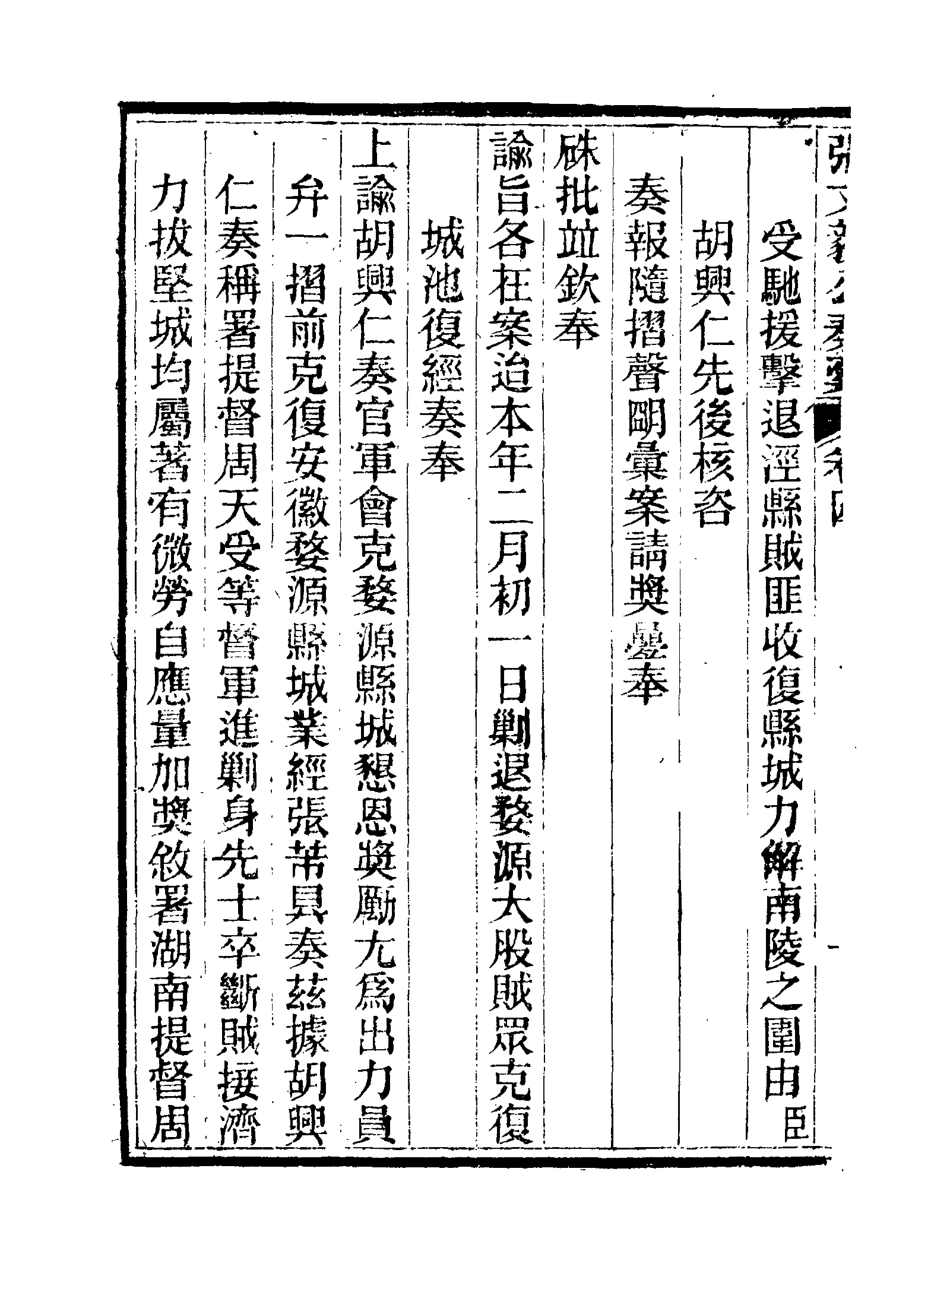 張文毅公奏稿 卷四
受馳援擊退涇縣賊匪收復縣城力解南陵之圍由臣
胡興仁先後核咨
奏報隨摺聲明彙案請獎疊奉
硃批竝欽奉
諭旨各在案迨本年二月初一日剿退婺源大股賊眾克復
城池復經奏奉
上諭胡興仁奏官軍會克婺源縣城懇恩獎勵尢爲出力員
弁一摺前克復安徽婺源縣城業經張芾具奏茲據胡興
仁奏稱署提督周天受等督軍進剿身先士卒斷賊接濟
力拔堅城均屬著有微勞自應量加獎敘署湖南提督周